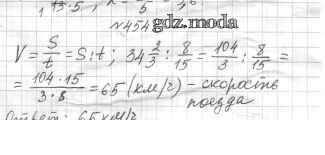 1 13·5 5
N454
gdz.moda
V = S/t = S:t; 34 2/3 : 8/15 = 104/3 : 8/15 =
= 104·15/3·8 = 65 (км/ч) – скорость
поезда
Ответ: 65 км/ч